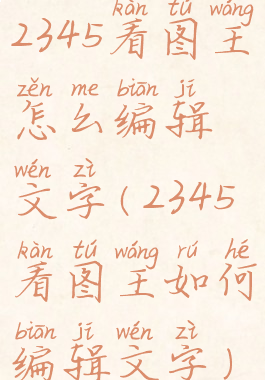 kàn tú wáng
2345看图王
zěn me biān jí
怎么编辑
wén zì
文字(2345
kàn tú wáng rú hé
看图王如何
biān jí wén zì
编辑文字)